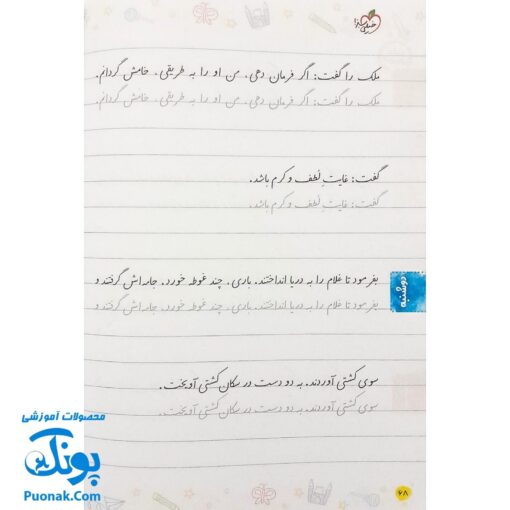 خیلی سبز
ملک را گفت: اگر فرمان دهی، من او را به طریقی، خامش گردانم.
ملک را گفت: اگر فرمان دهی، من او را به طریقی، خامش گردانم.
گفت: غایتِ لُطف و کرم باشد.
گفت: غایتِ لُطف و کرم باشد.
بفرمود تا غلام را به دریا انداختند. باری، چند غوطه خورد. جامه‌اش گرفتند و
بفرمود تا غلام را به دریا انداختند. باری، چند غوطه خورد. جامه‌اش گرفتند و
دوشنبه
سوی کشتی آوردند. به دو دست در سکان کشتی آویخت.
سوی کشتی آوردند. به دو دست در سکان کشتی آویخت.
محصولات آموزشی
پونک
Puonak.Com
۶۸